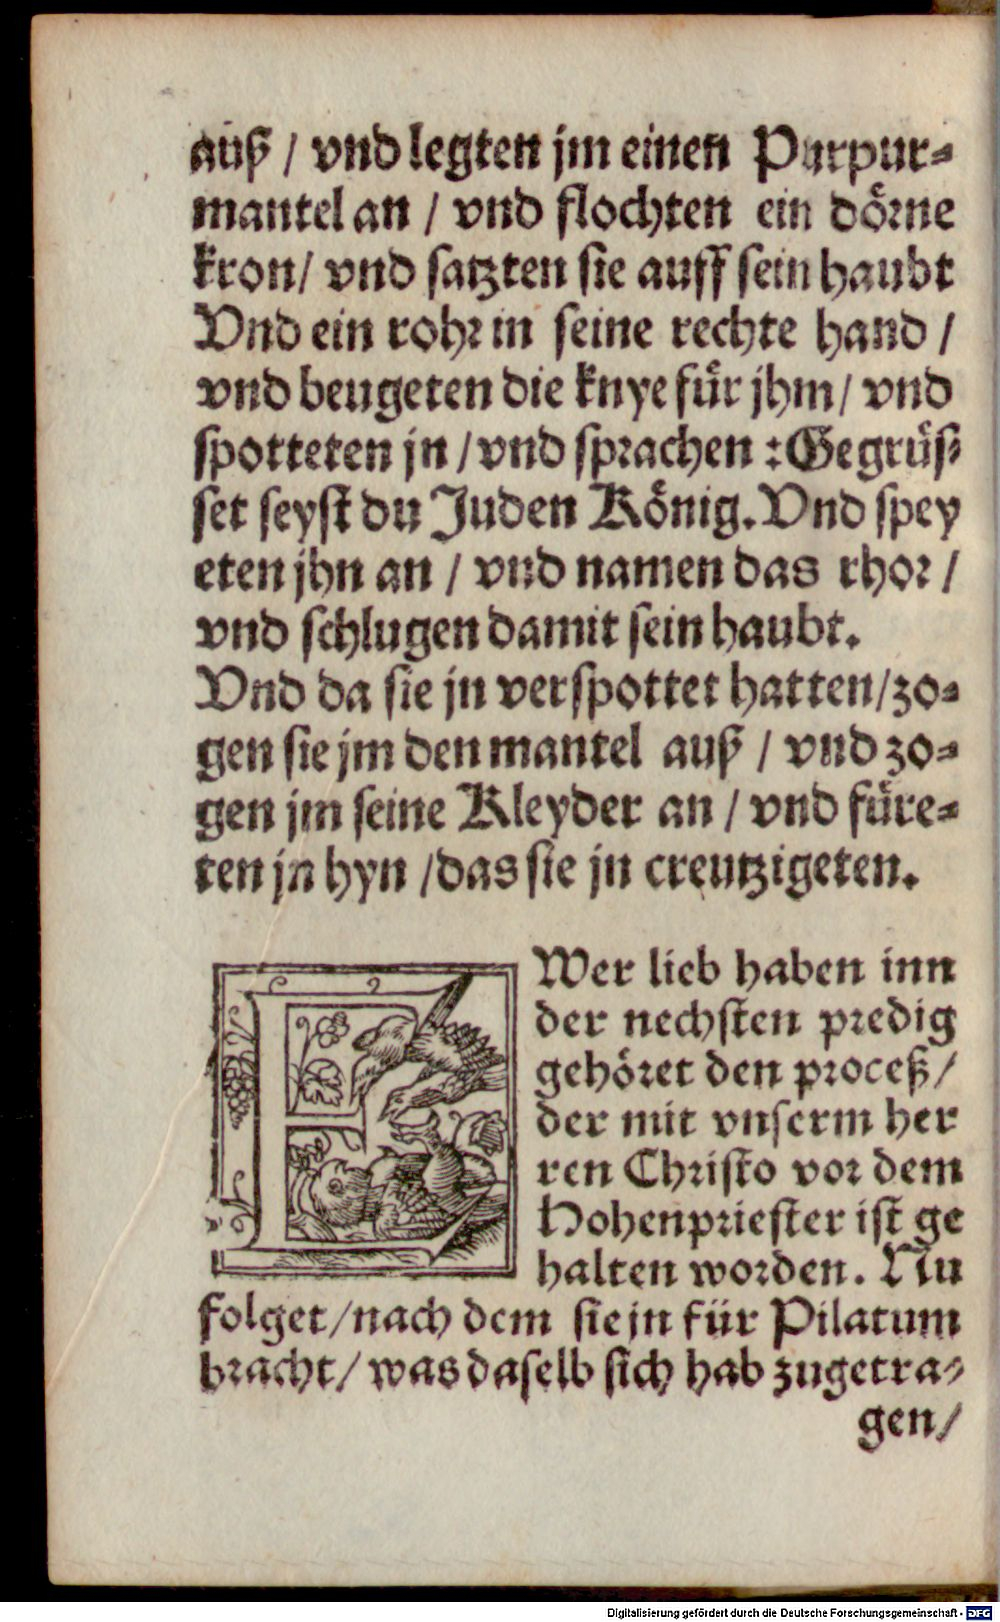 auß / vnd legten jm einen Purpur-
mantel an / vnd flochten ein dörne
kron/ vnd satzten sie auff sein haubt
Vnd ein rohr in seine rechte hand /
vnd beugeten die knye für jhm/ vnd
spotteten jn / vnd sprachen : Gegrüs-
set seyst du Juden König. Vnd spey
eten jhn an / vnd namen das rhor /
vnd schlugen damit sein haubt.
Vnd da sie jn verspottet hatten/zo-
gen sie jm den mantel auß / vnd zo-
gen jm seine Kleyder an / vnd füre-
ten jn hyn /das sie jn creutzigeten.
EWer lieb haben inn
der nechsten predig
gehöret den proceß/
der mit vnserm her
ren Christo vor dem
Hohenpriester ist ge
halten worden. Nu
folget/nach dem sie jn für Pilatum
bracht/ was daselb sich hab zugetra-
gen/
Digitalisierung gefördert durch die Deutsche Forschungsgemeinschaft - DFG